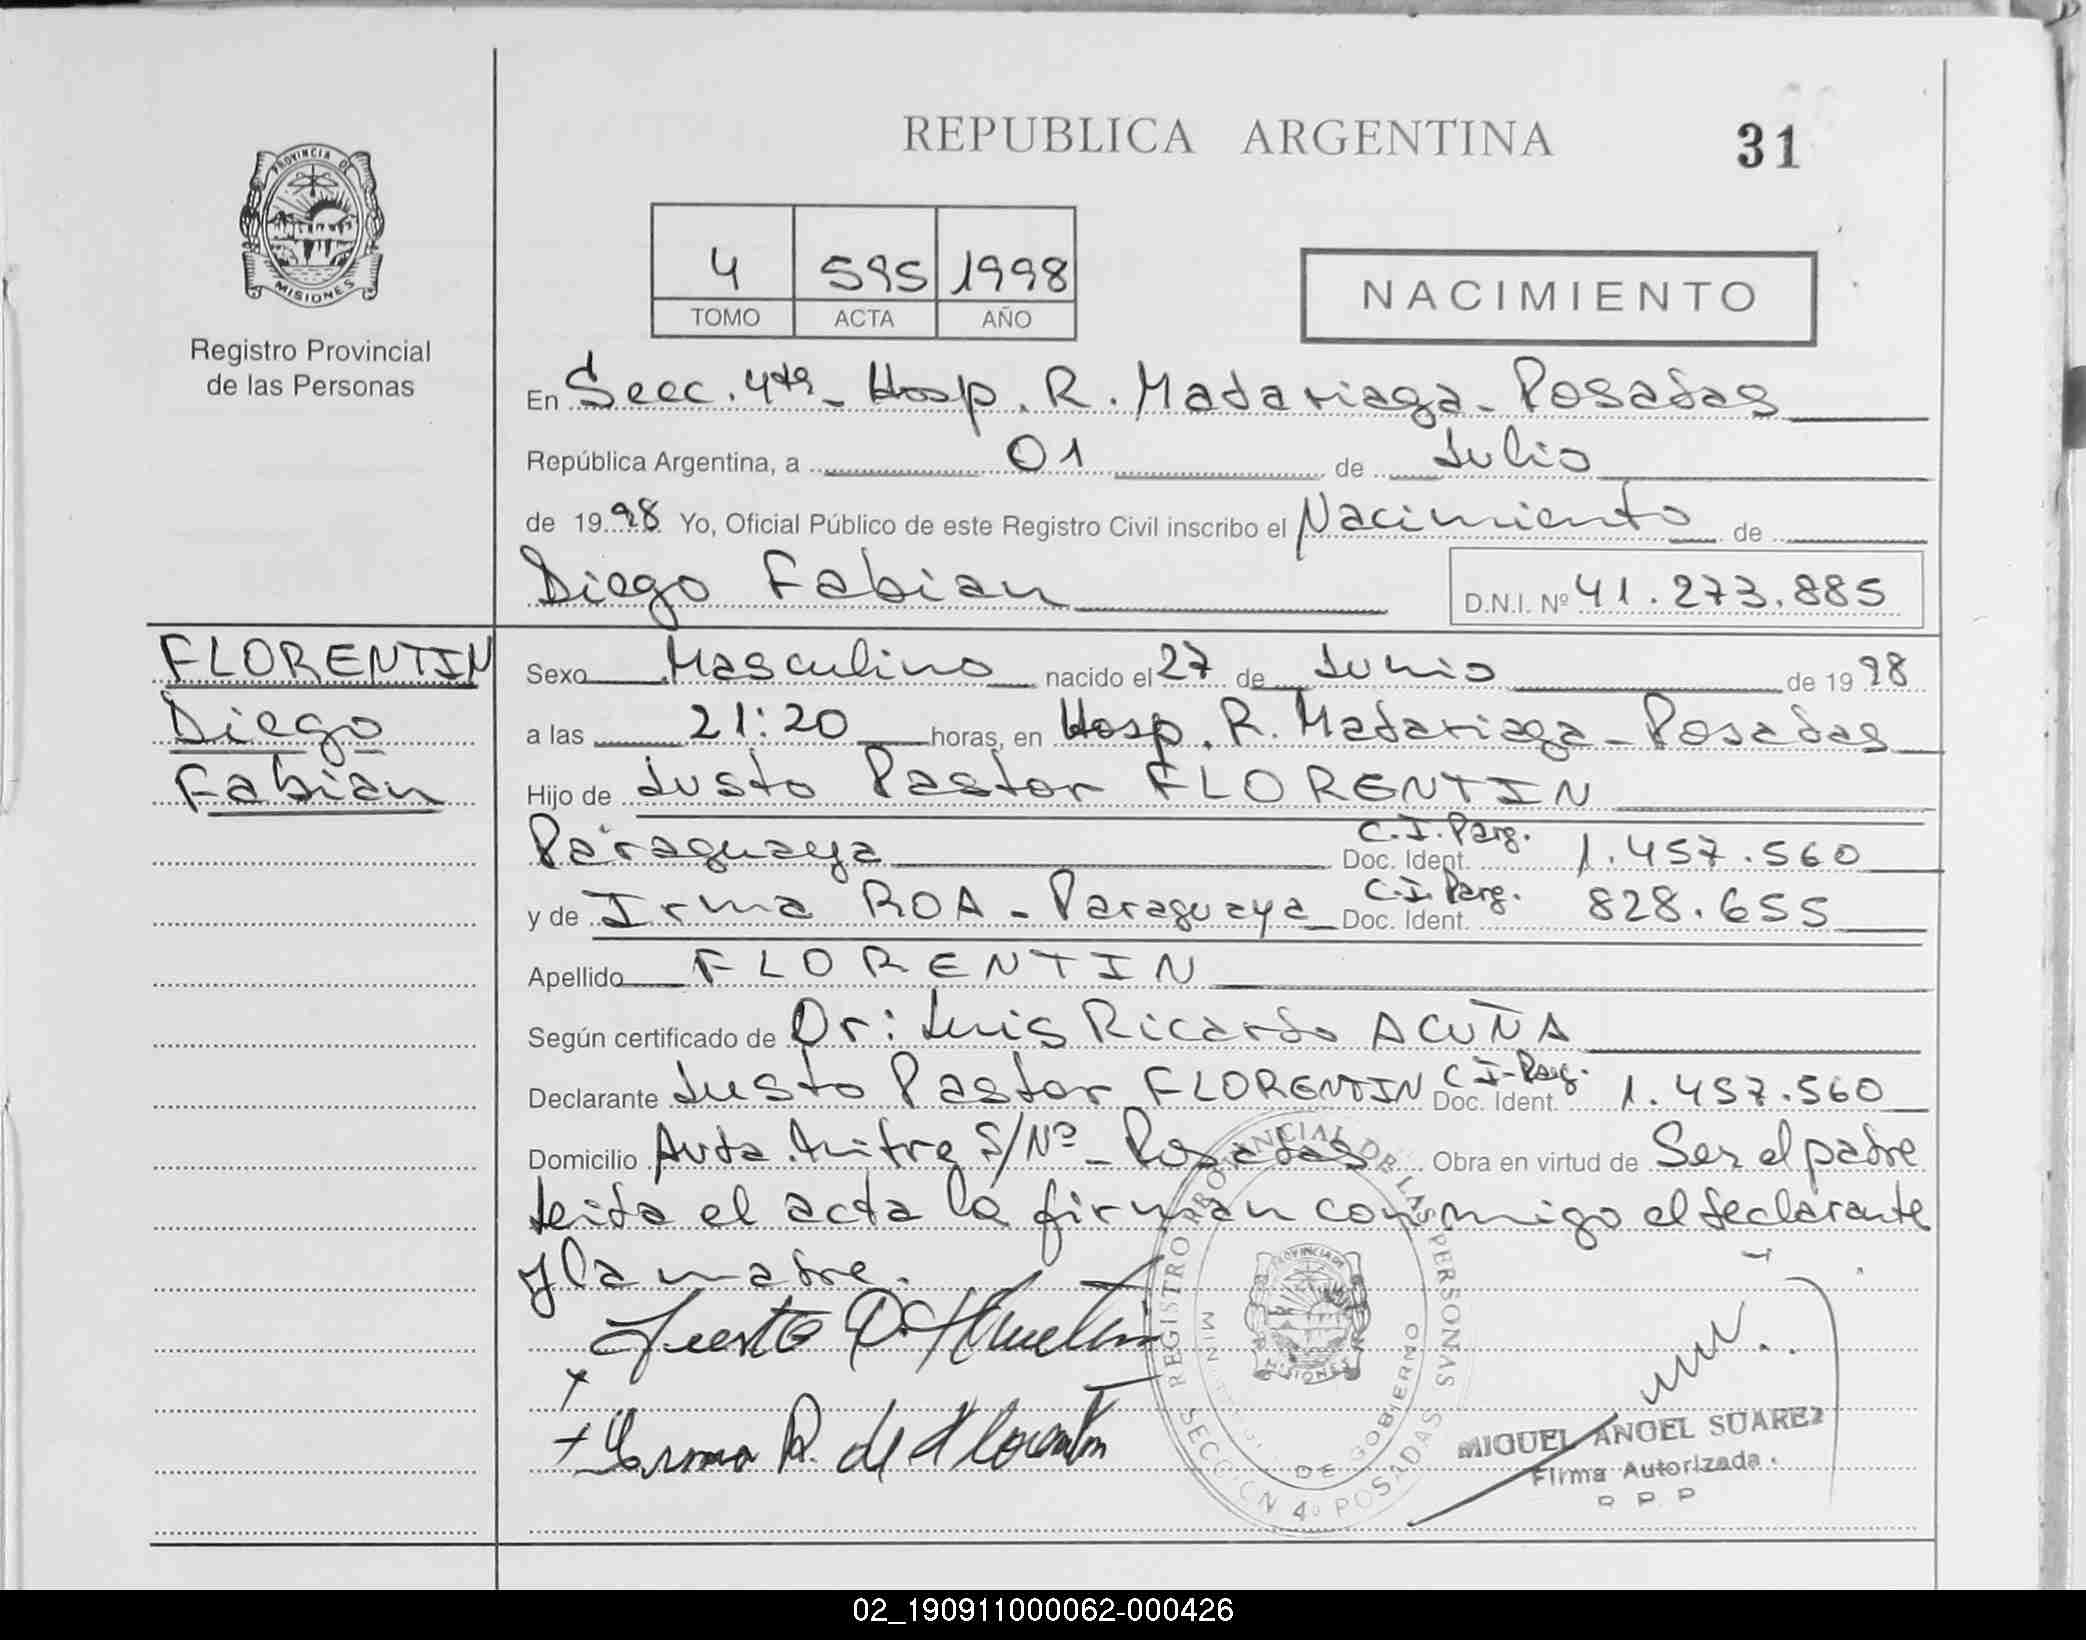 REPUBLICA ARGENTINA
31
PROVINCIA DE
MISIONES
Registro Provincial
de las Personas
4 595 1998
TOMO ACTA AÑO
NACIMIENTO
En Secc. 4ta - Hosp. R. Madariaga - Posadas
República Argentina, a 01 de Julio
de 1998 Yo, Oficial Público de este Registro Civil inscribo el Nacimiento de
Diego Fabian D.N.I. Nº 41.273.885
FLORENTIN
Diego
Fabian
Sexo Masculino nacido el 27 de Junio de 1998
a las 21:20 horas, en Hosp. R. Madariaga - Posadas
Hijo de Justo Pastor FLORENTIN
Paraguaya C.I. Parg. Doc. Ident. 1.457.560
y de Irma ROA - Paraguaya C.I. Parg. Doc. Ident. 828.655
Apellido FLORENTIN
Según certificado de Dr: Luis Ricardo ACUÑA
Declarante Justo Pastor FLORENTIN C I - Parg. Doc. Ident. 1.457.560
Domicilio Avda. Mitre S/Nº - Posadas Obra en virtud de Ser el padre
leida el acta la firman conmigo el declarante
y la madre.
Justo P. Florentin
Irma R. de Florentin
REGISTRO PROVINCIAL DE LAS PERSONAS
DE GOBIERNO
PROVINCIA DE
MISIONES
SECCION 4º POSADAS
MIGUEL ANGEL SUAREZ
Firma Autorizada
R P P
02_190911000062-000426